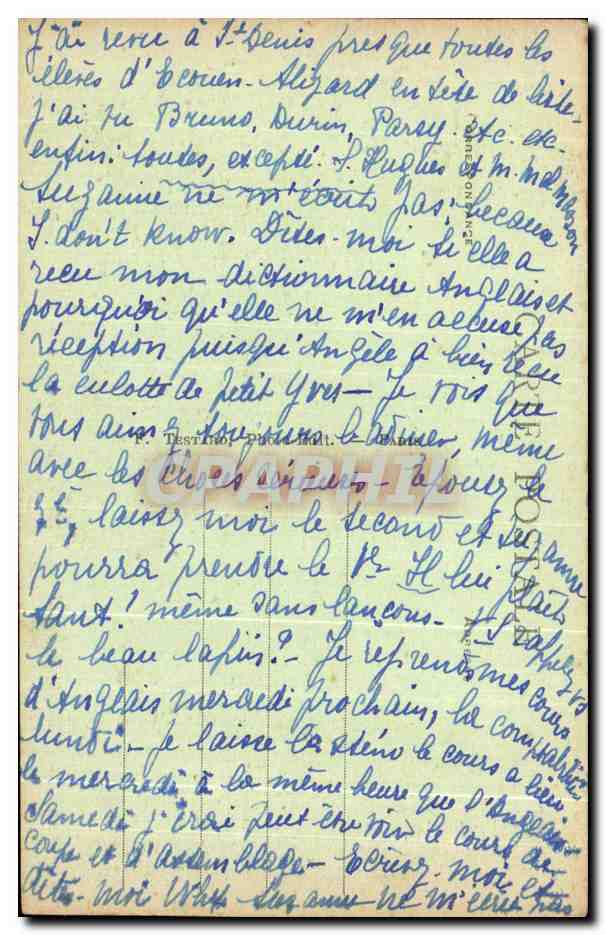 J'ai revu à St Denis presque toutes les
élèves d'Ecouen. Alizard en tête de liste
j'ai vu Bruno, Durin, Parsy etc. etc.
enfin: toutes, excepté. S. Hugues et M.
Suzanne ne m'écrit pas; because
I don't know. Dîtes-moi si elle a
reçu mon dictionnaire Anglais et
pourquoi qu'elle ne m'en accuse pas
réception puisqu'Angèle a bien reçu
la culotte de petit Yves - Je vois que
vous aimez toujours badiner, même
avec les choses sérieuses - Epousez le
laissez moi le second et Suzanne
pourra prendre le 1er Il lui plaît
tant! même sans lançons - L'appelez vs
le beau lapin? - Je reprends mes cours
d'Anglais mercredi prochain, la comptabilité
lundi - Je laisse la sténo le cours a lieu
le mercredi à la même heure que l'Anglais -
Samedi j'irai peut être voir le cours de
coupe et d'assemblage - Ecrivez-moi et
dîtes-moi Why Suzanne ne m'écrit pas
CORRESPONDANCE
CARTE POSTALE
F. Testard, Phot.-Edit. - Paris
CPAPHIL